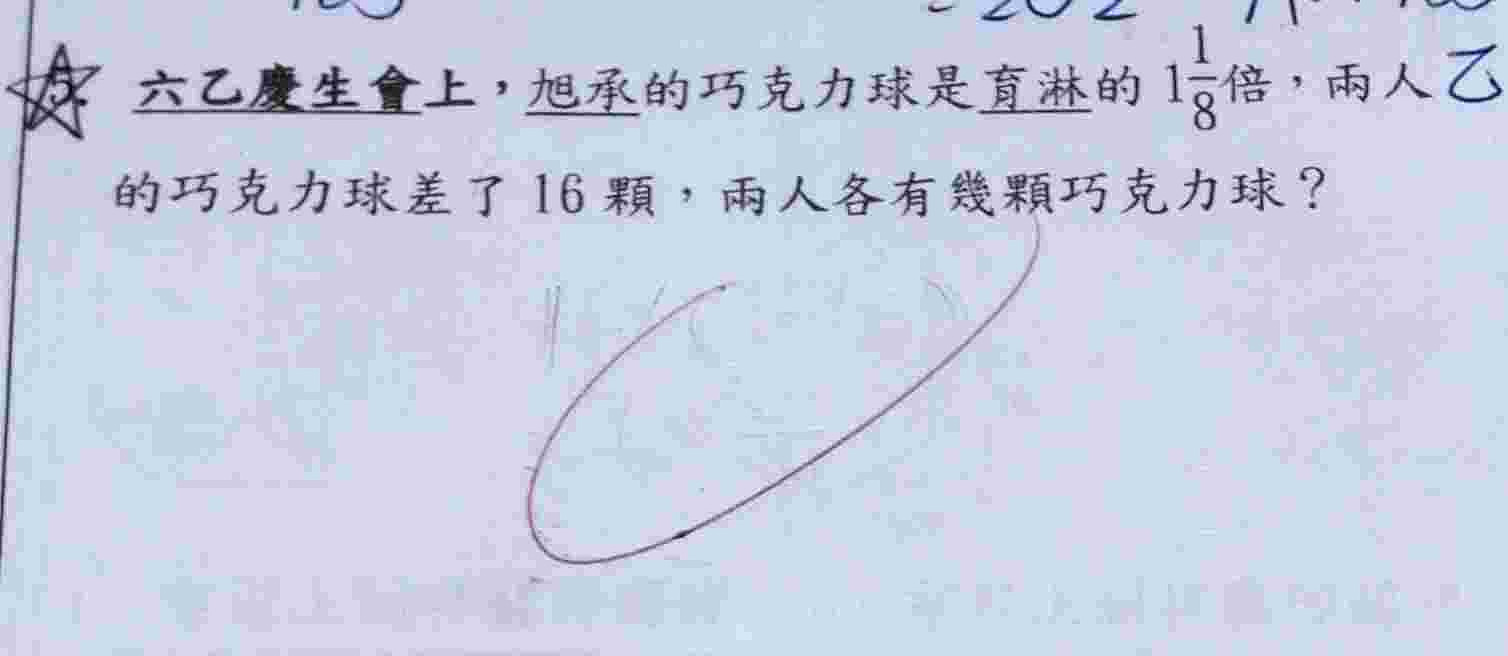 5. 六乙慶生會上，旭承的巧克力球是育淋的 1 1/8 倍，兩人乙
的巧克力球差了 16 顆，兩人各有幾顆巧克力球？